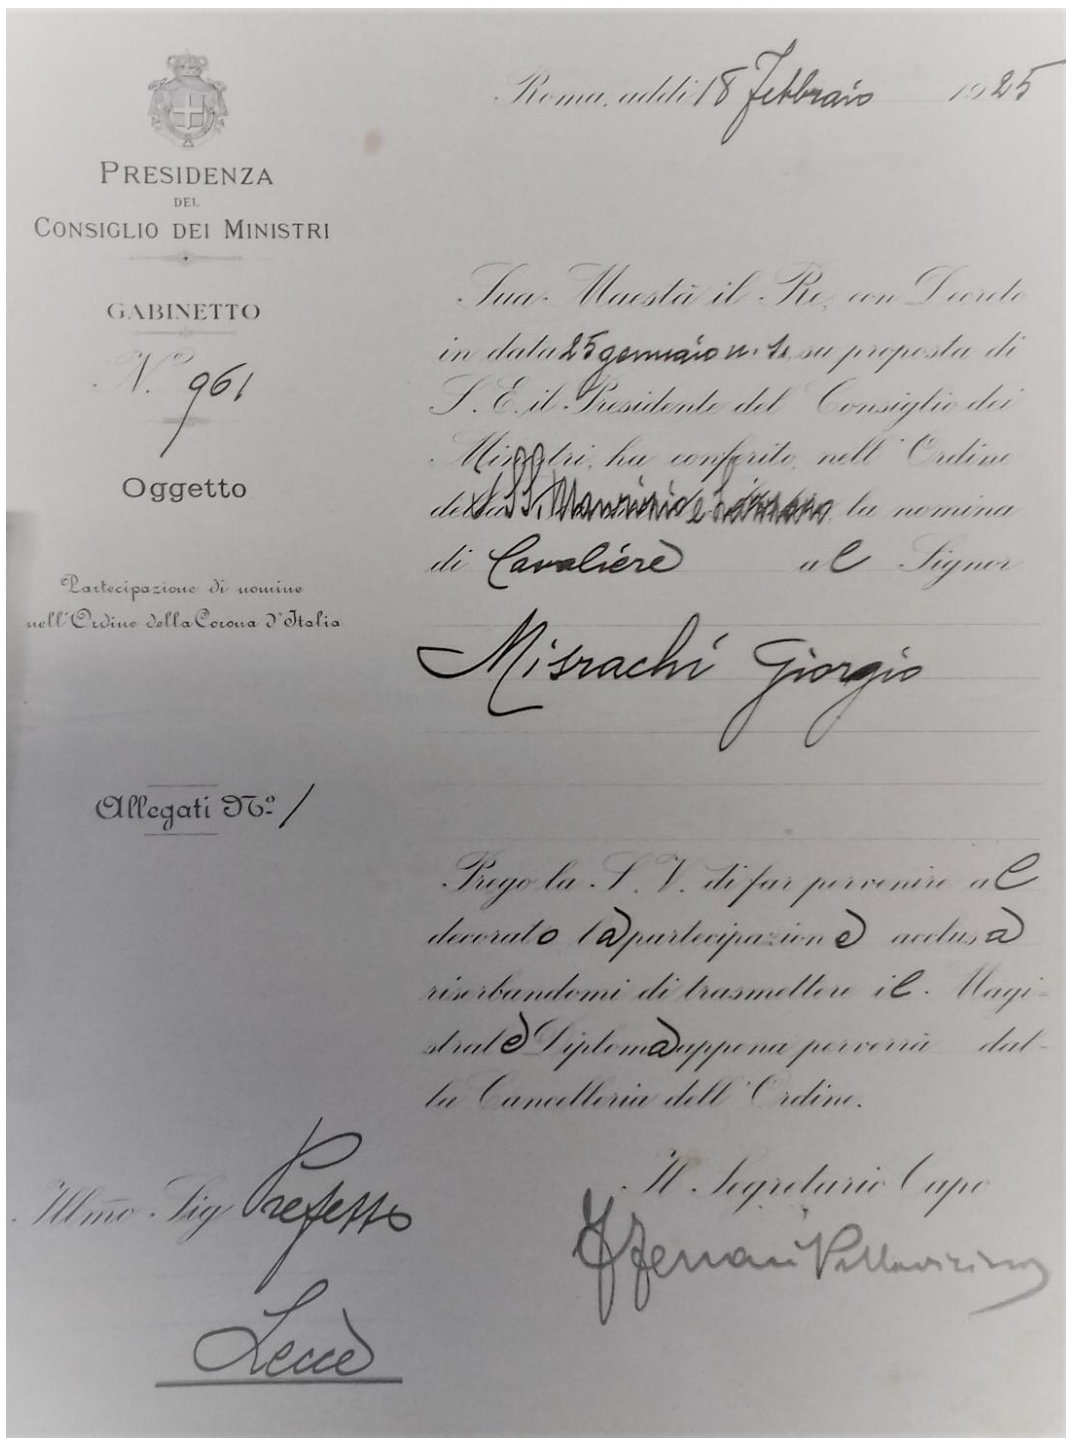 Roma, addì 18 Febbraio 1925
PRESIDENZA
DEL
CONSIGLIO DEI MINISTRI
GABINETTO
N.º 961
Oggetto
Partecipazione di nomine
nell'Ordine della Corona d'Italia
Allegati Nº 1
Sua Maestà il Re, con Decreto
in data 25 gennaio u. s. su proposta di
S. E. il Presidente del Consiglio dei
Ministri, ha conferito, nell'Ordine
dei SS. Maurizio e Lazzaro la nomina
di Cavaliere al Signor
Misrachi Giorgio
Prego la S. V. di far pervenire al
decorato la partecipazione acclusa
riserbandomi di trasmettere il Magi-
strale Diploma appena perverrà dal-
la Cancelleria dell'Ordine.
Il Segretario Capo
Ferrari Pallavicino
Illmo Sig Prefetto
Lecce